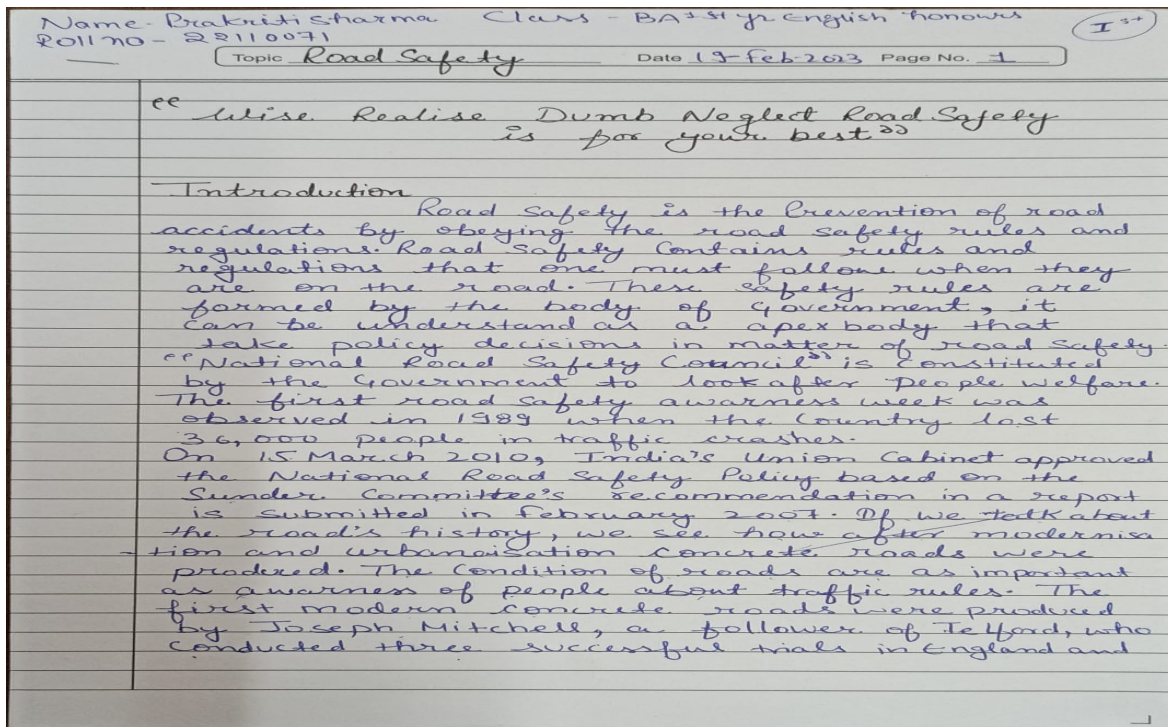 Name - Prakriti Sharma Class - BA 1st yr English honours
Roll no - 22110071 Ist
Topic Road Safety Date 19-Feb-2023 Page No. 1
"Wise Realise Dumb Neglect Road Safety
is for your best"
Introduction
Road Safety is the Prevention of road
accidents by obeying the road safety rules and
regulations. Road Safety Contains rules and
regulations that one must follow when they
are on the road. These safety rules are
formed by the body of Government, it
can be understand as a apex body that
take policy decisions in matter of road safety.
"National Road Safety Council" is constituted
by the Government to look after People welfare.
The first road safety awarness week was
observed in 1989 when the Country lost
36,000 people in traffic crashes.
On 15 March 2010, India's Union Cabinet approved
the National Road Safety Policy based on the
Sunder Committee's recommendation in a report
is submitted in February 2007. If we talk about
the road's history, we see how after modernisa
-tion and urbanaisation concrete roads were
produced. The Condition of roads are as important
as awarness of people about traffic rules. The
first modern concrete roads were produced
by Joseph Mitchell, a follower of Telford, who
conducted three successful trials in England and